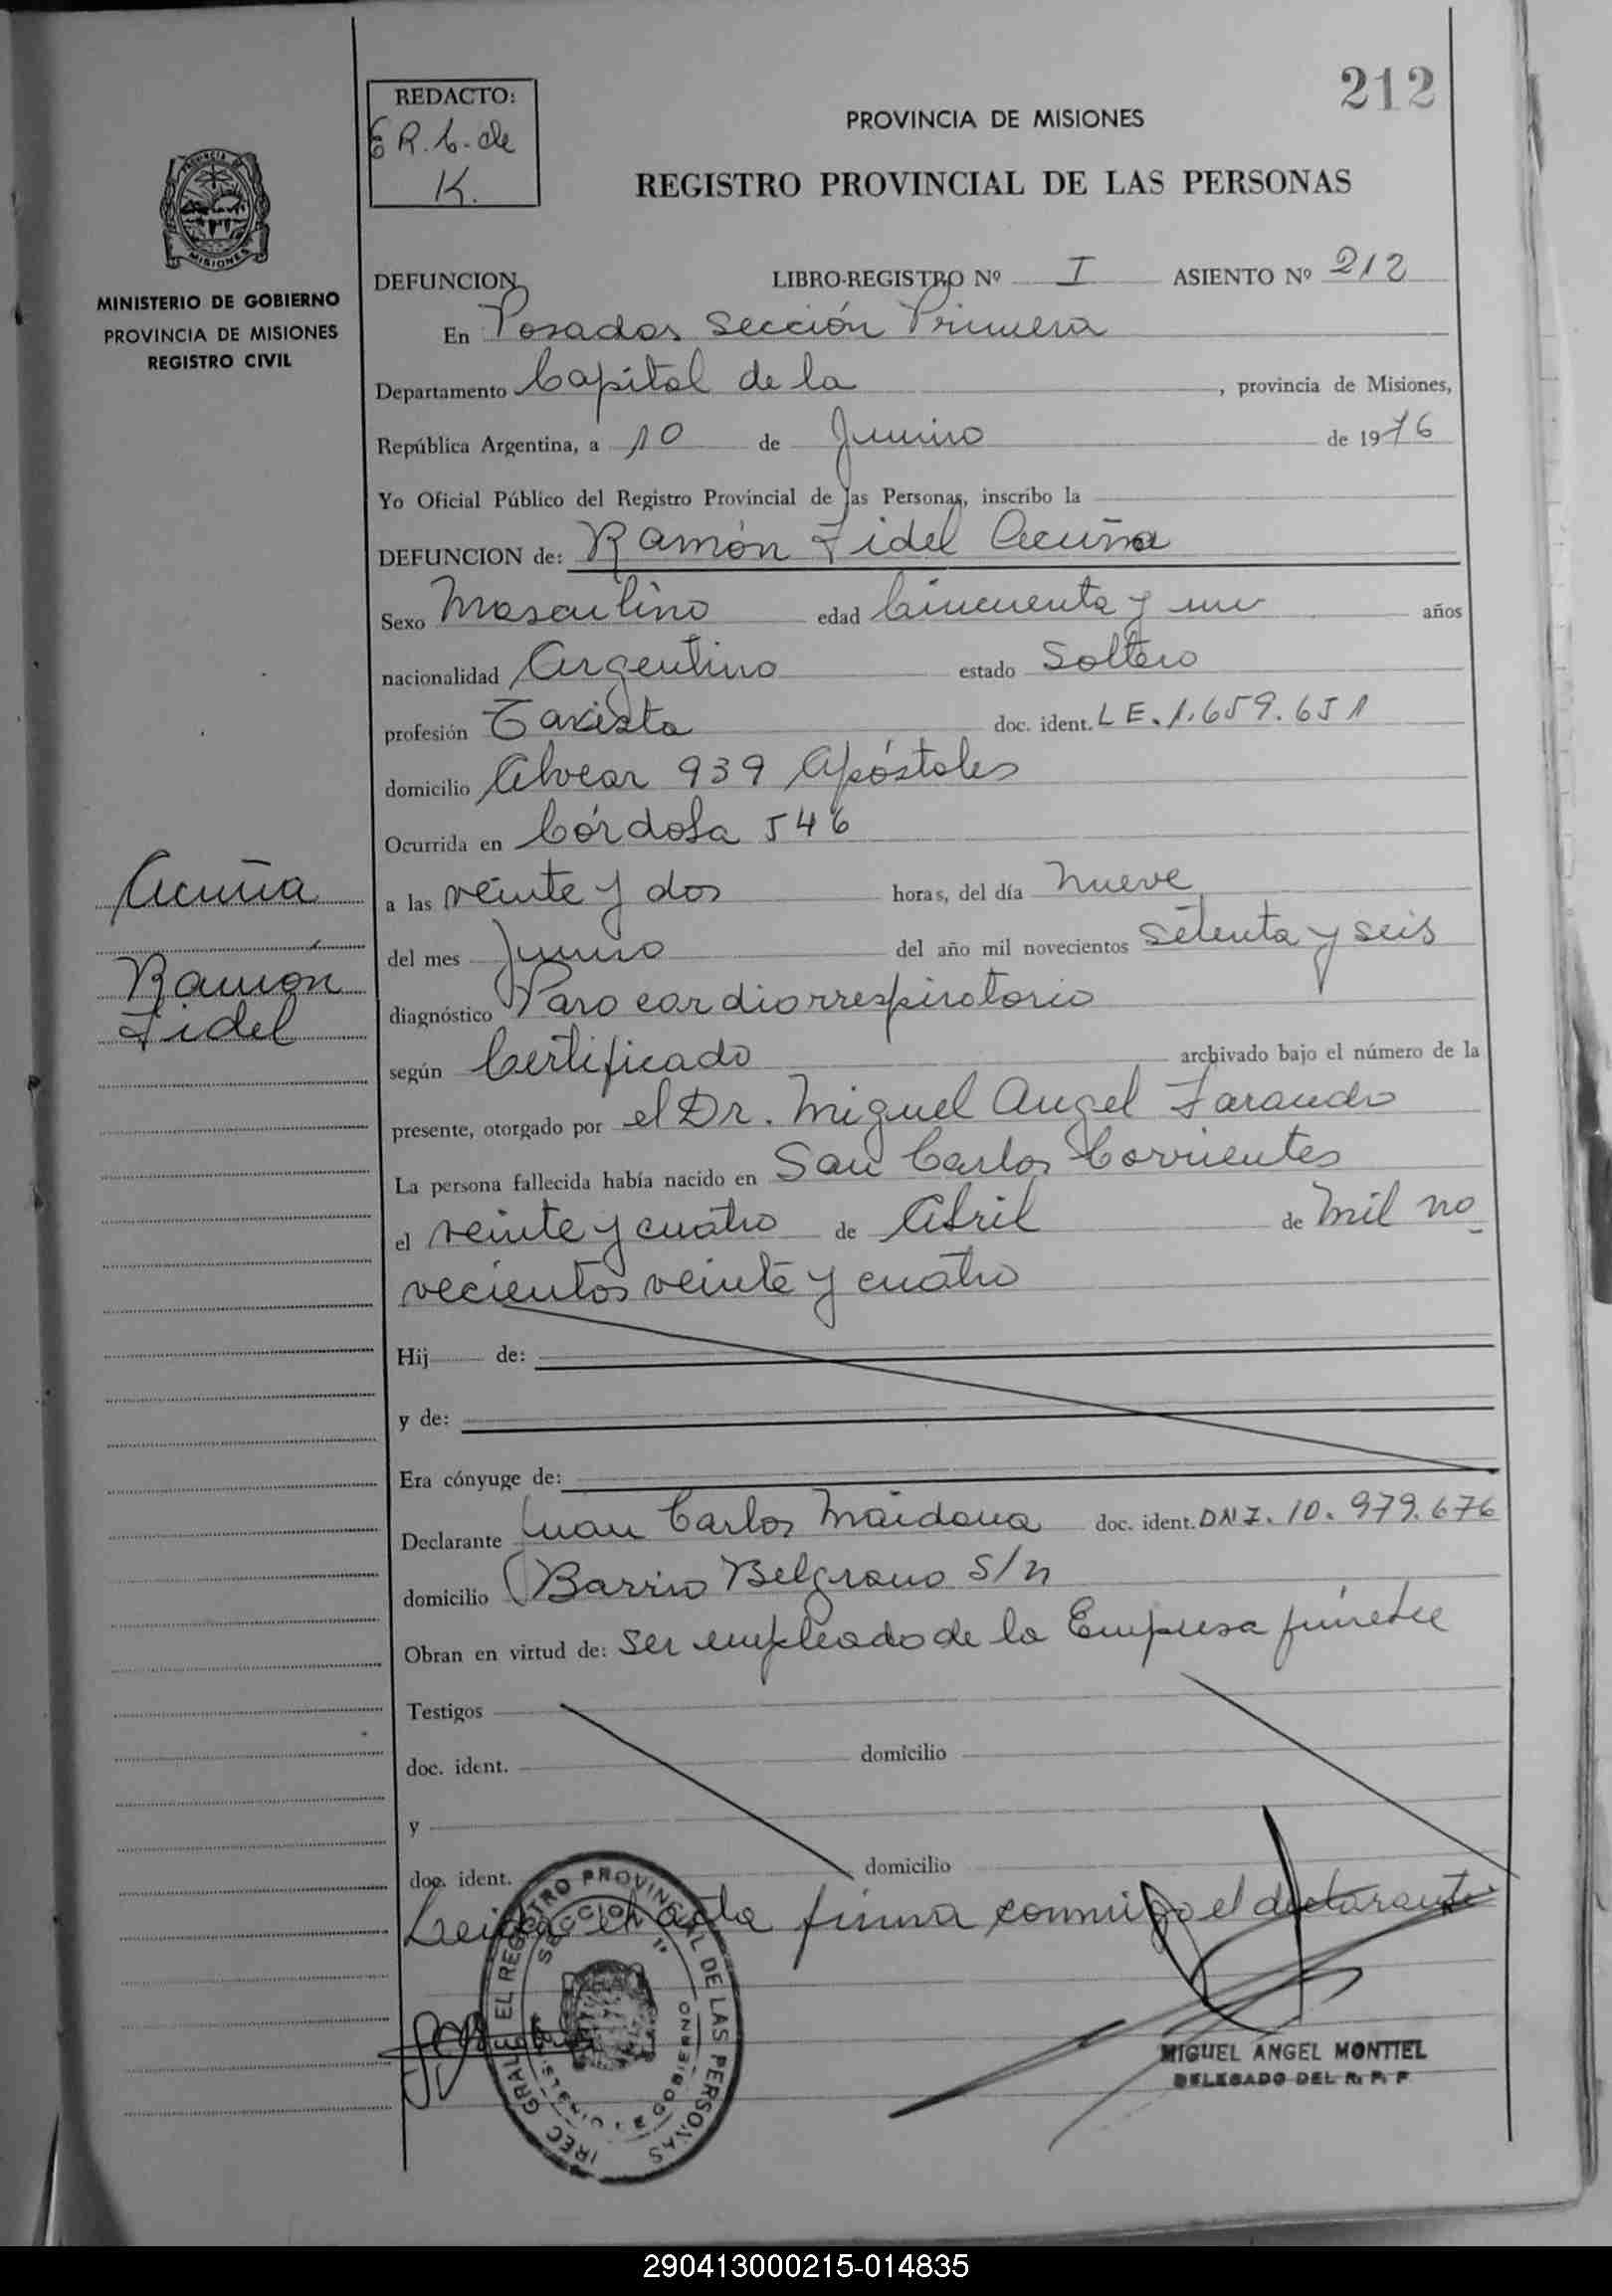 212
REDACTO:
E R. b. de
K.
PROVINCIA DE MISIONES
REGISTRO PROVINCIAL DE LAS PERSONAS
MISIONES
MINISTERIO DE GOBIERNO
PROVINCIA DE MISIONES
REGISTRO CIVIL
DEFUNCION LIBRO-REGISTRO Nº I ASIENTO Nº 212
En Posadas Sección Primera
Departamento Capital de la , provincia de Misiones,
República Argentina, a 10 de Junio de 1976
Yo Oficial Público del Registro Provincial de las Personas, inscribo la
DEFUNCION de: Ramón Fidel Acuña
Sexo Masculino edad Cincuenta y un años
nacionalidad Argentino estado Soltero
profesión Taxista doc. ident. L E. 1.659.651
domicilio Alvear 939 Apóstoles
Ocurrida en Córdoba 546
a las veinte y dos horas, del día nueve
del mes Junio del año mil novecientos setenta y seis
diagnóstico Paro cardiorrespiratorio
según Certificado archivado bajo el número de la
presente, otorgado por el Dr. Miguel Angel Farando
La persona fallecida había nacido en San Carlos Corrientes
el veinte y cuatro de Abril de Mil no
vecientos veinte y cuatro
Hij de:
y de:
Era cónyuge de:
Declarante Juan Carlos Maidana doc. ident. DNI. 10.979.676
domicilio Barrio Belgrano S/n
Obran en virtud de: ser empleado de la Empresa fúnebre
Testigos
doc. ident. domicilio
y
doc. ident. domicilio
Leida el acta firma conmigo el declarante
Acuña
Ramón
Fidel
GRAL EL REGISTRO PROVINCIAL DE LAS PERSONAS
SECCION 1ª
GOBIERNO
MIGUEL ANGEL MONTIEL
DELEGADO DEL R. P. P
290413000215-014835